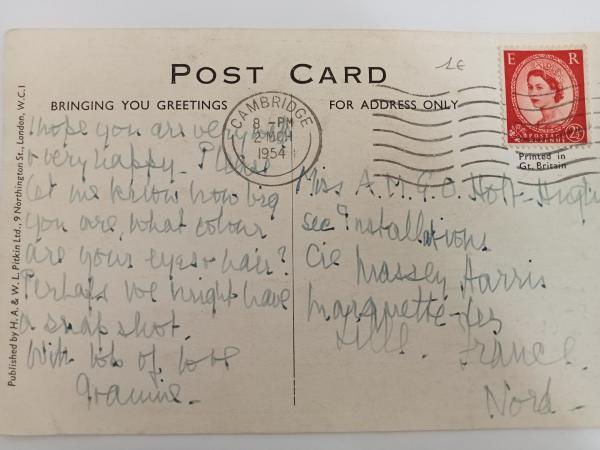 1E
POST CARD
BRINGING YOU GREETINGS
FOR ADDRESS ONLY
CAMBRIDGE
8 - PM
2 MCH
1954
E R
POSTAGE
REVENUE
2½D
Printed in
Gt. Britain
Published by H. A. & W. L. Pitkin Ltd., 9 Northington St., London, W.C.1
I hope you are very
& very happy. Please
let me know how big
you are, what colour
are your eyes & hair?
Perhaps we might have
a snapshot.
With lots of love
Grannie -
Miss A. M. G. O. Holt-
see Installations
Cie Massey Harris
Marquette-les
Lille. France.
Nord -